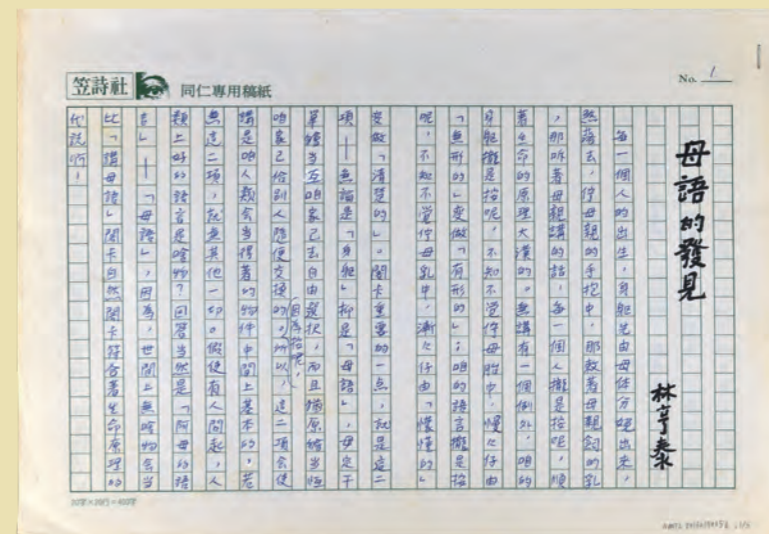 笠詩社 同仁專用稿紙
No. 1
母語的發見
林亨泰
每一個人的出生，身軀先由母体分娩出來，
然落去，佇母親的手抱中，那飲著母親飼的乳
，那听著母親講的話，每一個人攏是按呢，順
著生命的原理大漢的。無講有一個例外，咱的
身軀攏是按呢，不知不覺佇母胎中，慢々仔由
「無形的」變做「有形的」；咱的語言攏是按
呢，不知不覺佇母乳中，漸々仔由「懞懂的」
變做「清楚的」。閣卡重要的一点，就是這二
項——無論是「身軀」抑是「母語」，毋定干
單當互咱家己去自由選択，而且猶原當恆
咱家己佮別人隨便交換的。所以，這二項會使
因為按呢，
講是咱人類會當得著的物件中間上基本的，若
無這二項，就無其他一切。假使有人問起，人
類上好的語言是啥物？回答当然是「阿母的語
言」——「母語」，因為，世間上無啥物會当
比「講母語」閣卡自然閣卡符合著生命原理的
代誌啊！
20字×20行=400字